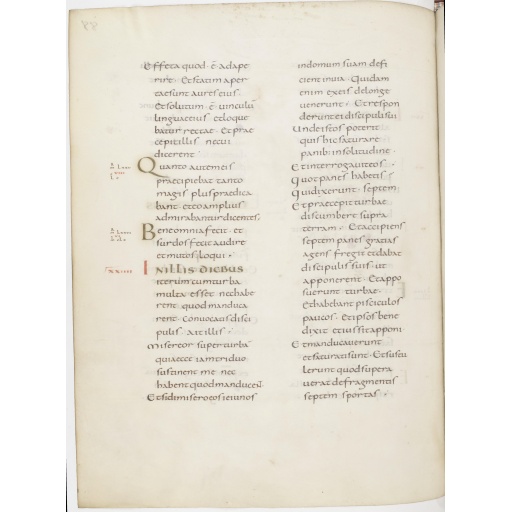 Effeta quod · ē adape
rire · Et statim aper
tae sunt aures eius ·
Et solutum · ē vinculū
linguae eius et loque
batur rectae · Et prae
cepit illis ne cui
dicerent ·
Quanto autem eis
praecipiebat tanto
magis plus praedica
bant et eo amplius
admirabantur dicentes ·
Bene omnia fecit · et
surdos fecit audire
et mutos loqui ·
xxiiii
IN ILLIS DIEBUS
iterum cum turba
multa esset nec habe
rent quod manduca
rent · Convocatis disci
pulis ait illis ·
Misereor super turbā
quia ecce iam triduo
sustinent me nec
habent quod manducēt
Et si dimisero eos ieiunos
in domum suam defi
cient in via · Quidam
enim ex eis de longe
venerunt · Et respon
derunt ei discipuli sui
Unde istos poterit
quis hic saturare
panib; in solitudine ·
Et interrogavit eos ·
Quot panes habetis
Qui dixerunt · septem ·
Et praecepit turbae
discumbere supra
terram · Et accipiens
septem panes gratias
agens fregit et dabat
discipulis suis · ut
apponerent · Et appo
suerunt turbae ·
Et habebant pisciculos
paucos · Et ipsos bene
dixit et iussit apponi
Et manducaverunt
et saturati sunt · Et sustu
lerunt quod supera
verat de fragmentis
septem sportas ·